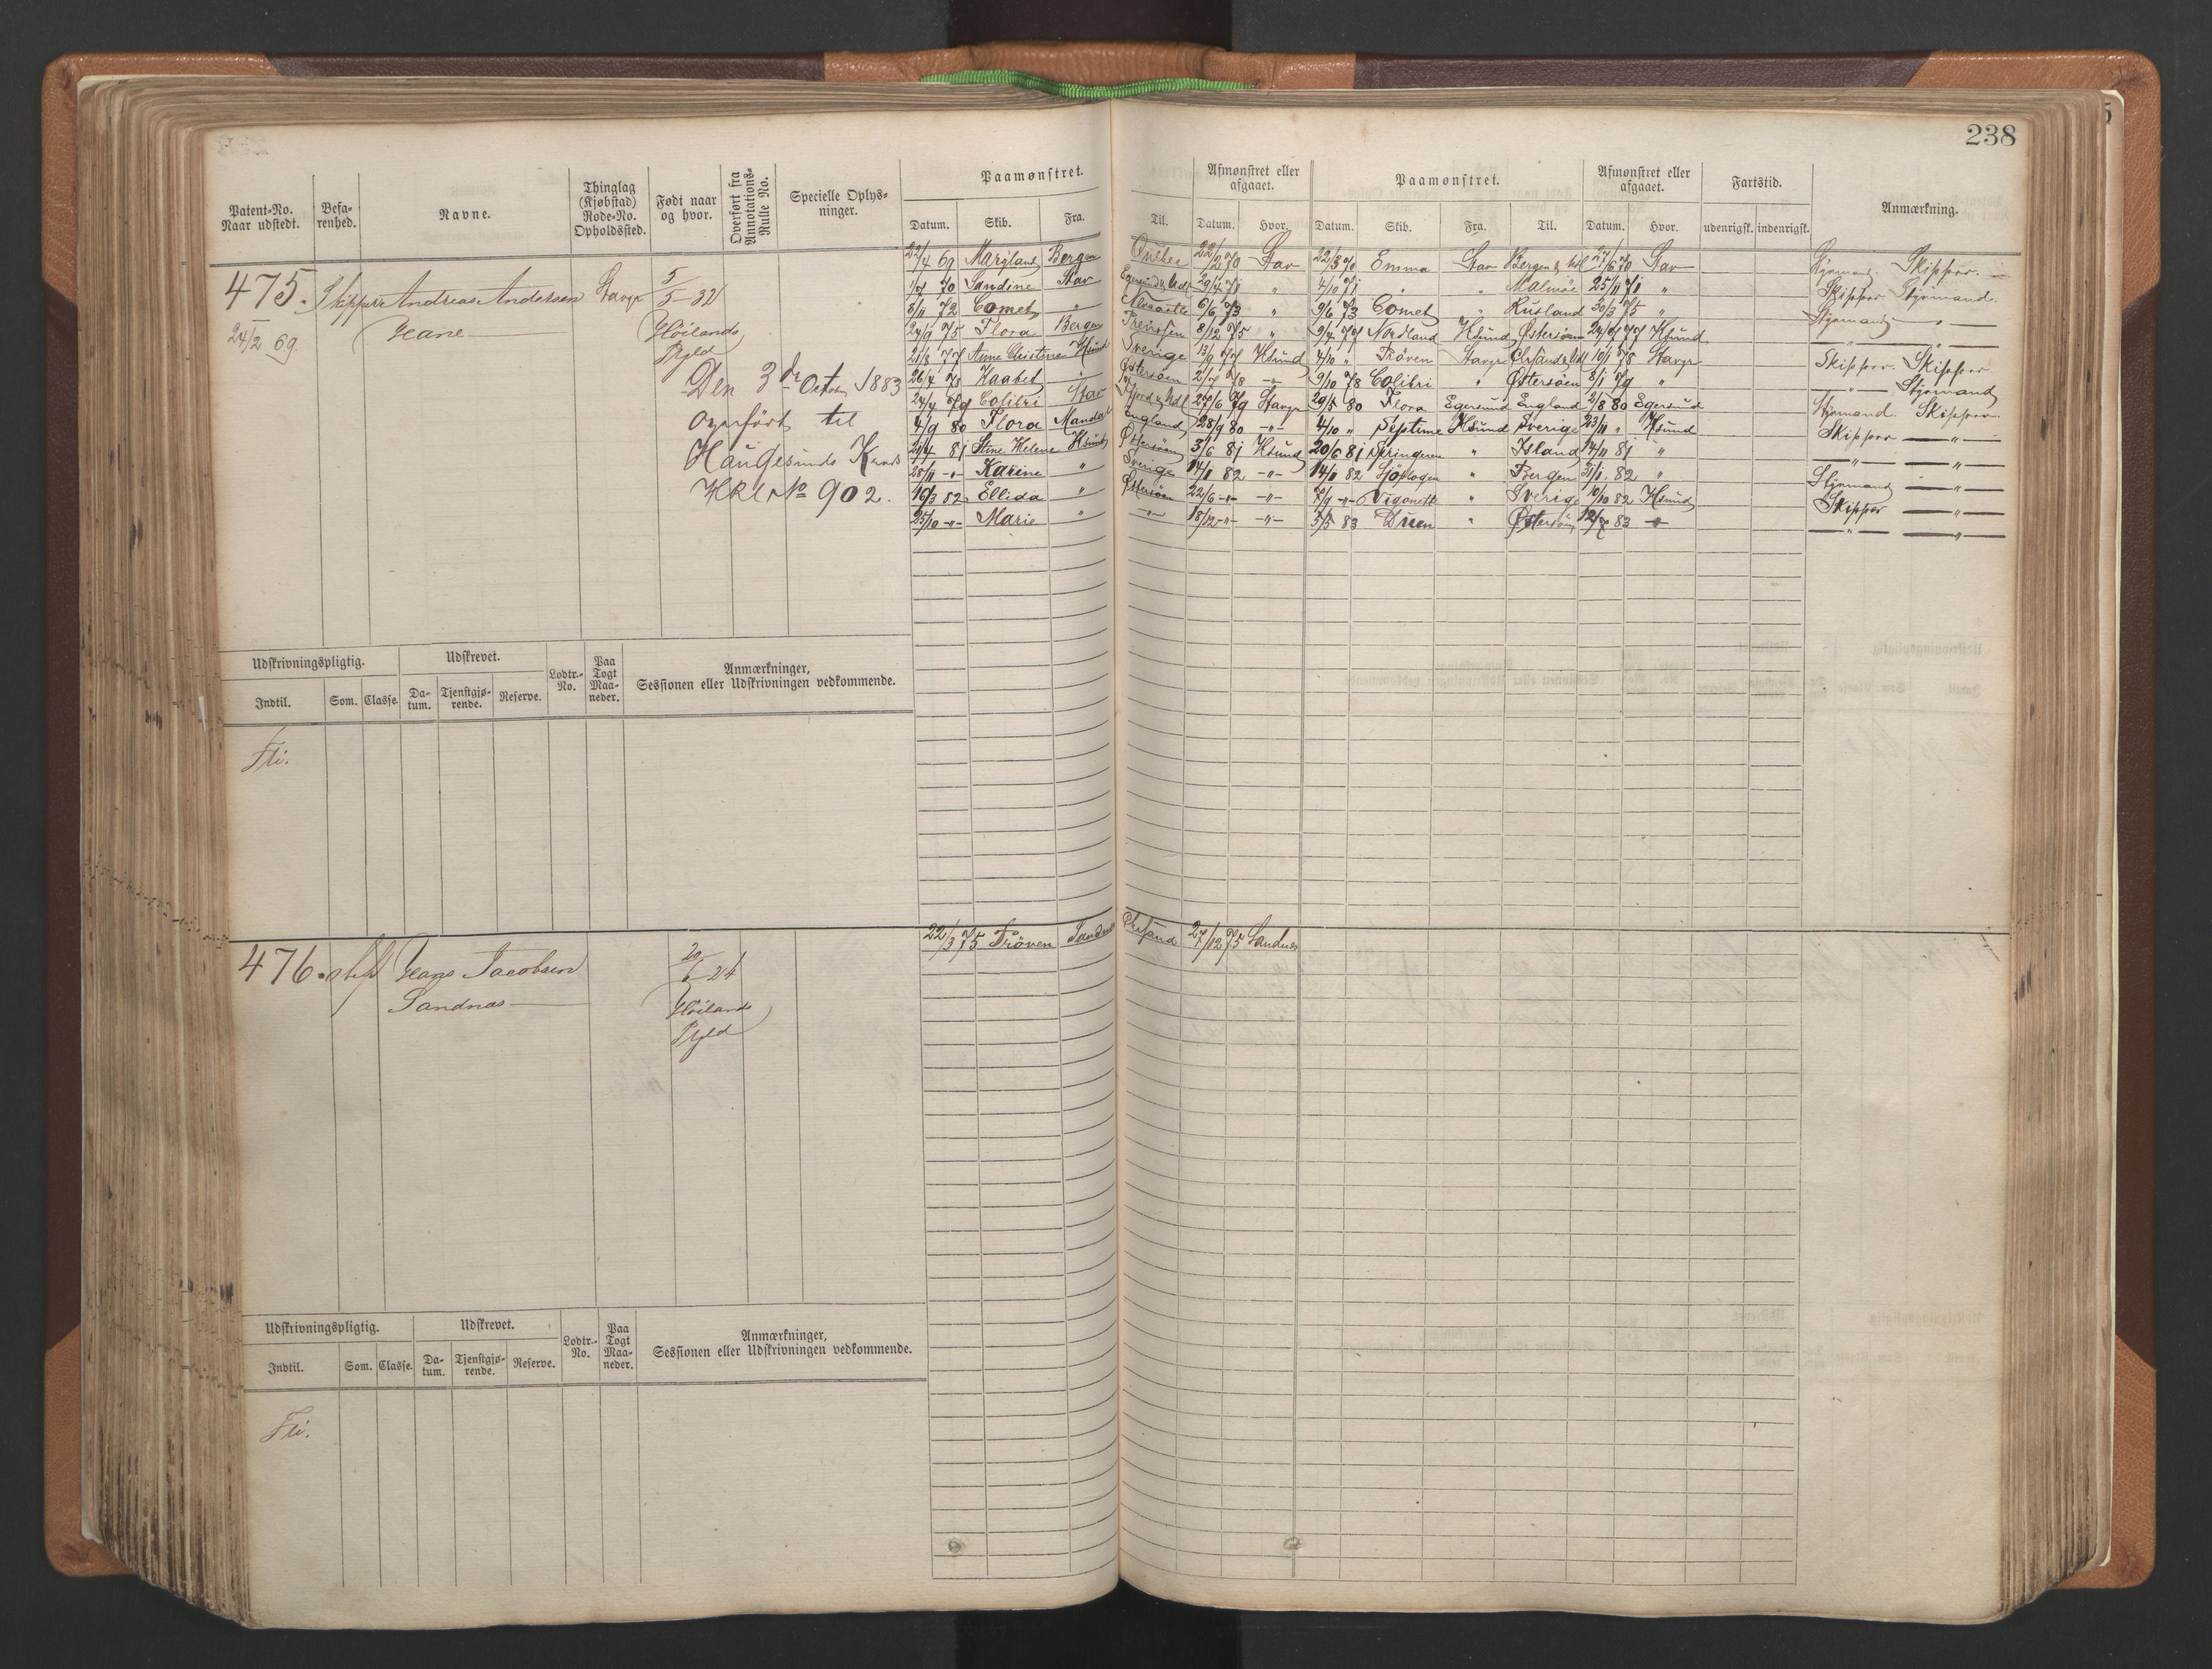 238
Patent-No. Naar udstedt.
Befarenhed.
Navne.
Thinglag (Kjøbstad) Rode-No. Opholdssted.
Født naar og hvor.
Overført fra Annotations-Rulle No.
Specielle Oplysninger.
Paamønstret.
Datum. Skib. Fra. Til.
Afmønstret eller afgaaet.
Datum. Hvor.
Paamønstret.
Datum. Skib. Fra. Til.
Afmønstret eller afgaaet.
Datum. Hvor.
Fartstid.
udenrigsk. indenrigsk.
Anmærkning.
475. Skipper Andreas Andersen
Stavgr
5/5 32
24/2 69.
Høilands
Pgld
Den 3de Octob 1883
overført til
Haugesunds Krds
HRl No 902.
22/4 69 Bergen Quebec 22/2 70 Stav 22/3 70 Emma Stav 27/6 70 Stav Styrmand. Skipper.
70 Sandine Stav 29/4 71 " 4/10 71 " " Malmøe 25/11 71 " Skipper Styrmand.
8/11 72 Comet " 6/6 73 " 9/6 73 Comet " Rusland 30/3 75 " Styrmand "
24/9 75 Flora Bergen 8/12 75 " Nordland Hsund Østersøen Hsund " "
Anne Christine Hsund Sverige 13/9 77 Hsund 4/10 " Prøven Stavgr 78 Stavgr Skipper. Skipper.
26/4 78 " Østersøen 2/7 78 " 9/10 78 Colibri " Østersøen 8/1 79 " " Styrmand
24/4 79 Colibri Stav 27/6 79 Stavgr 29/5 80 Flora Egersund England 2/8 80 Egersund Styrmand. Skipper.
4/9 80 Flora Mandal England 28/9 80 " 4/10 " Hsund Sverige 23/11 " Hsund Skipper "
21/4 81 Stine Helene Hsund Østersøen 3/6 81 Hsund 20/6 81 Springeren " Island 14/11 81 " " "
28/11 " Karine " Sverige 14/1 82 " 14/1 82 " Bergen 31/1 82 " Styrmand "
16/3 82 Ellida " Østersøen 22/6 " " 7/9 " " Sverige 10/10 82 Hsund Skipper "
25/10 " Marie " " 18/12 " " 3/5 83 " Østersøen 12/7 83 " " "
Udskrivningspligtig.
Indtil. Som. Classe.
Udskrevet.
Datum. Tjenstgjørende. Reserve.
Lodtr.-No.
Paa Togt Maaneder.
Anmærkninger, Sessionen eller Udskrivningen vedkommende.
Fli.
476. Hans Jacobsen
Sandnæs
20/6 24
Høilands
Pgld
22/3 75 Prøven Sandnæs Chrsand 27/12 75 Sandnæs
Udskrivningspligtig.
Indtil. Som. Classe.
Udskrevet.
Datum. Tjenstgjørende. Reserve.
Lodtr.-No.
Paa Togt Maaneder.
Anmærkninger, Sessionen eller Udskrivningen vedkommende.
Fli.